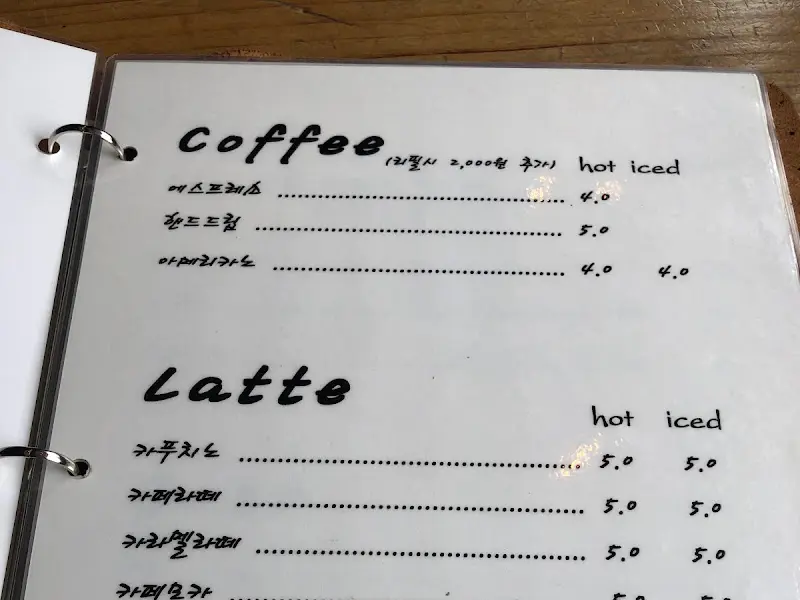 Coffee (리필시 2,000원 추가) hot iced
에스프레소 4.0
핸드드립 5.0
아메리카노 4.0 4.0
Latte hot iced
카푸치노 5.0 5.0
카페라떼 5.0 5.0
카라멜라떼 5.0 5.0
카페모카 5.0 5.0